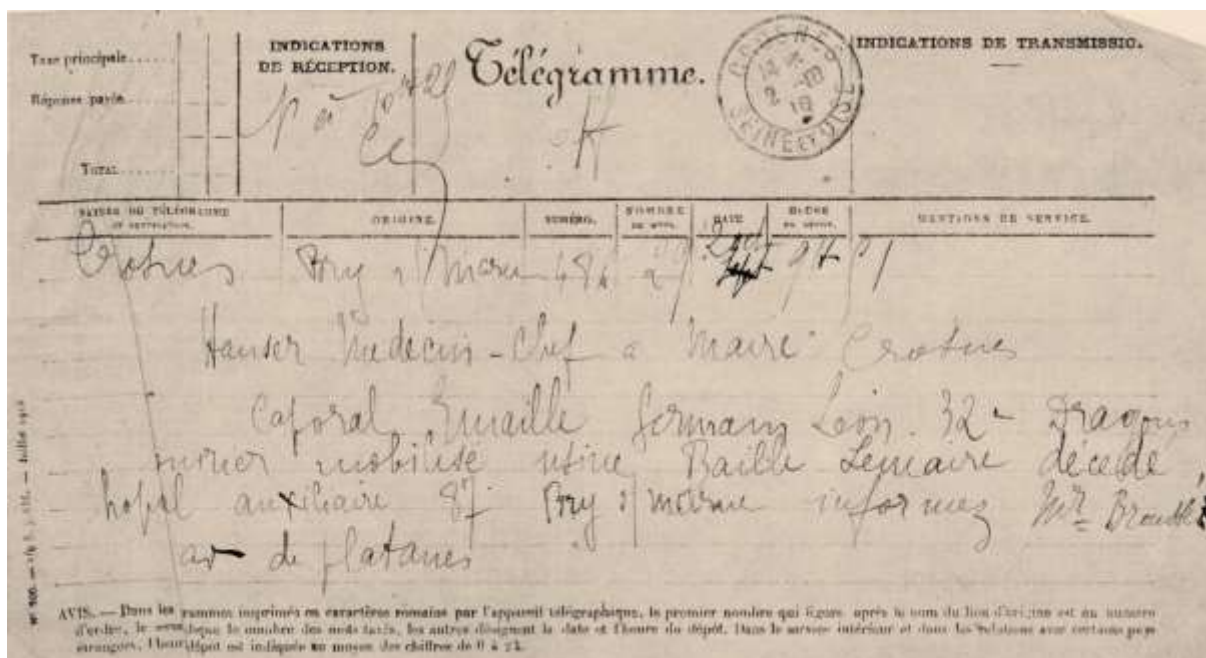 Taxe principale......
Réponse payée......
TOTAL......
INDICATIONS
DE RÉCEPTION.
Télégramme.
INDICATIONS DE TRANSMISSIO.
SEINE ET OISE
ORIGINE.
NUMÉRO.
NOMBRE
DE MOTS.
DATE
HEURE
DE DÉPÔT.
MENTIONS DE SERVICE.
Crosnes Bry s/ Marne
Hauser Médecin-Chef a Maire Crosnes
Caporal Emaille Germain Léon 32e Dragons
mobilisé usine Baille Lemaire décédé
hopal auxiliaire 87 Bry s/ marne informez Mr
av de platanes
AVIS. — Dans les rammes imprimés en caractères romains par l'appareil télégraphique, le premier nombre qui figure après le nom du lieu d'origine est un numéro
d'ordre, le indique le nombre des mots taxés, les autres désignent la date et l'heure du dépôt. Dans le service intérieur et dans les relations avec certains pays
étrangers, l'heure dépôt est indiquée au moyen des chiffres de 0 à 24.